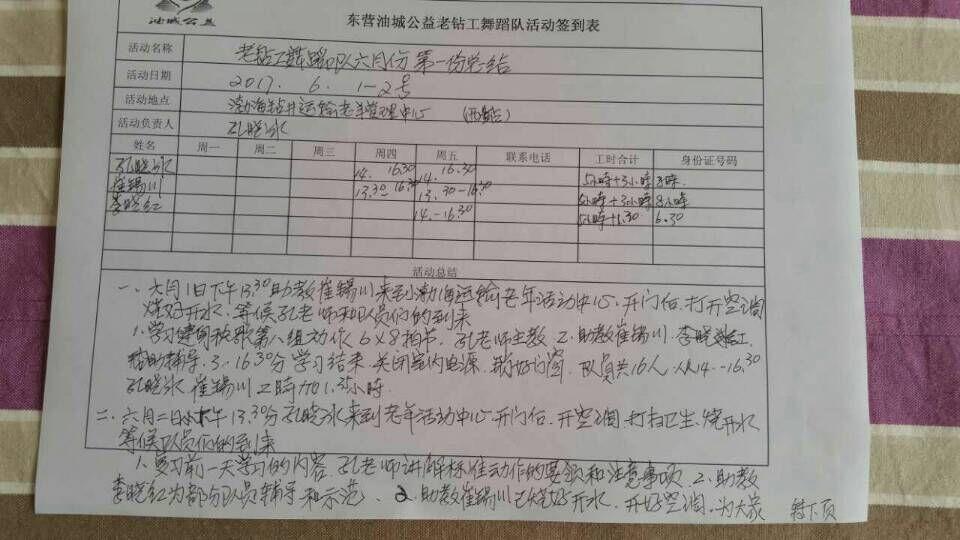 油城公益
东营油城公益老钻工舞蹈队活动签到表
活动名称 老钻工舞蹈队六月份第一份总结
活动日期 2017. 6. 1-2号
活动地点 渤海钻井运输老年管理中心
活动负责人 孔晓冰
姓名 周一 周二 周三 周四 周五 联系电话 工时合计 身份证号码
孔晓冰 14. 16.30 14. 16.30 5小時+3小時 8時.
崔锡川 13.30-16.30 13.30-16.30 5小時+3小時 8小時
李晓红 14.-16.30 5小時+1.30 6.30
活动总结
一、六月1日下午13.30助教崔锡川来到渤海运输老年活动中心.开门后.打开空调
烧好开水.等候孔老师和队员们的到来
1.学习健身秧歌第八组动作6×8拍节.孔老师主教 2.助教崔锡川.李晓红
辅导.3.16.30分学习结束.关闭室内电源.队员共16人.从14.-16.30
孔晓冰 崔锡川 工時加1.5小時.
二.六月二日下午13.30分孔晓冰来到老年活动中心开门后.开空调.打扫卫生.烧开水
等候队员们的到来
1.复习前一天学习的内容.孔老师讲解标准动作的要领和注意事项 2.助教
李晓红为部分队员辅导和示范、2.助教崔锡川已烧好开水.开好空调.为大家 转下页